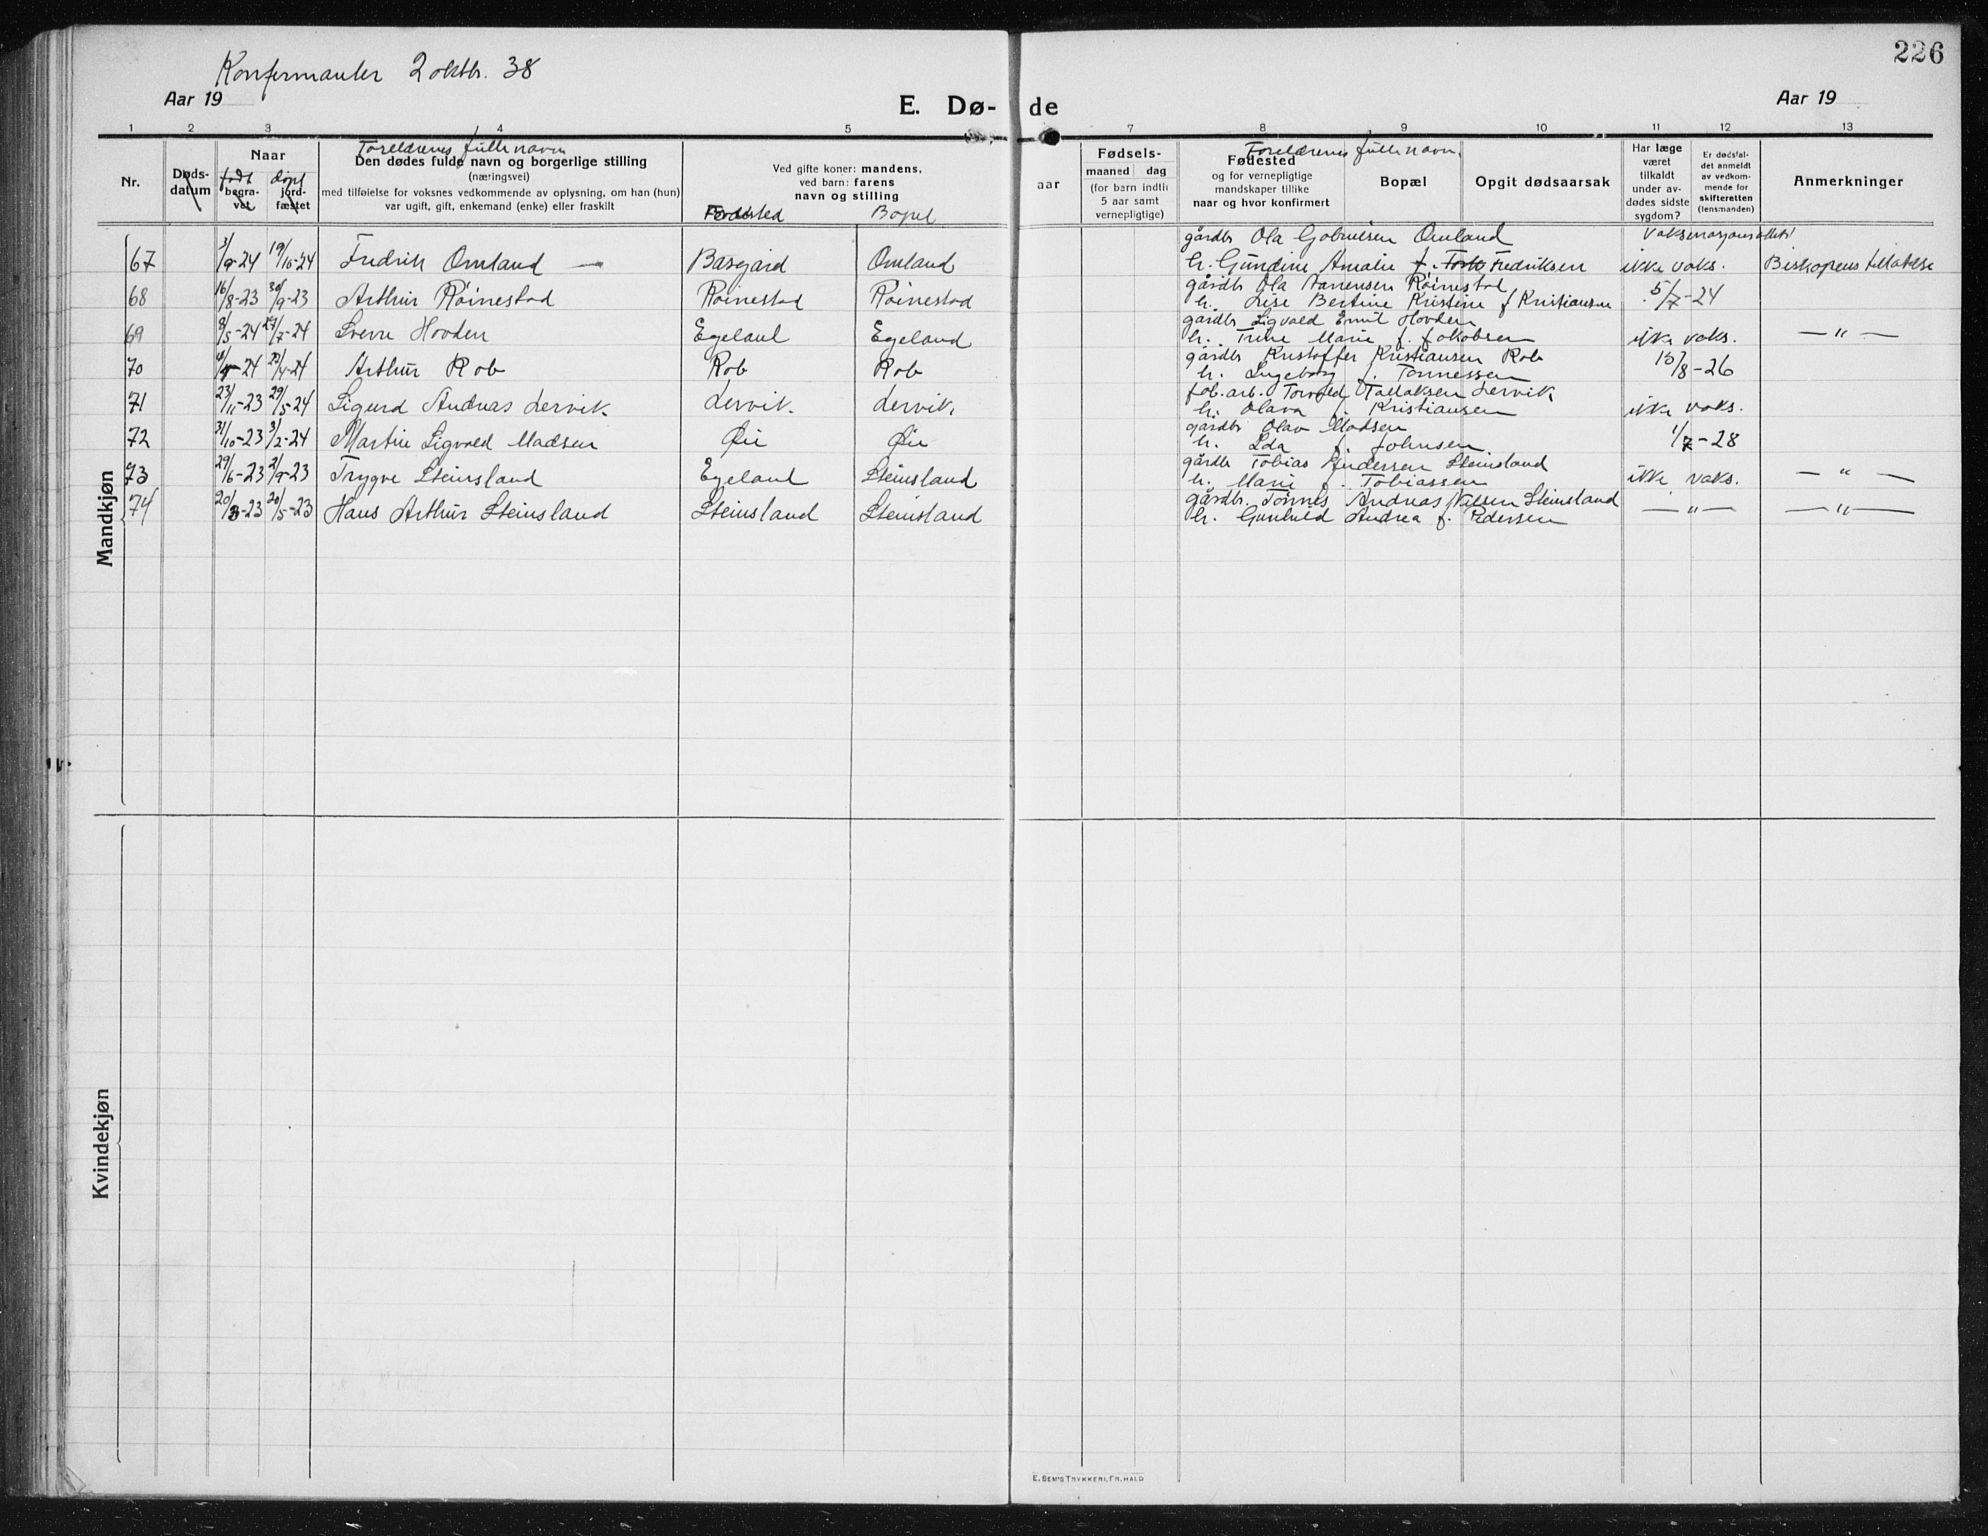 226
Konfirmanter 2 oktbr. 38
Aar 19
E. Dø- de
Aar 19
1 2 3 4 5 7 8 9 10 11 12 13
Nr.
Døds-
datum
Naar
født døpt
begra-
vet
jord-
fæstet
Foreldrenes fulle navn
Den dødes fulde navn og borgerlige stilling
(næringsvei)
med tilføielse for voksnes vedkommende av oplysning, om han (hun)
var ugift, gift, enkemand (enke) eller fraskilt
Ved gifte koner: mandens,
ved barn: farens
navn og stilling
Fødested Bopel
aar
Fødsels-
maaned dag
(for barn indtil
5 aar samt
vernepligtige)
Foreldrenes fulle navn.
Fødested
og for vernepligtige
mandskaper tillike
naar og hvor konfirmert
Bopæl
Opgit dødsaarsak
Har læge
været
tilkaldt
under av-
dødes sidste
sygdom?
Er dødsfal-
det anmeldt
av vedkom-
mende for
skifteretten
(lensmanden)
Anmerkninger
Mandkjøn
67 3/9-24 19/10-24 Fredrik Omland — Basgård Omland gårdbr Ola Gabrielsen Omland
h. Gundine Amalie f. Fredriksen ikke vaks. Biskopens tillatelse
68 16/8-23 30/9-23 Arthur Røinestad Røinestad Røinestad gårdbr Ola Aanensen Røinestad
h. Lise Bertine Kristine f Kristiansen 5/7-24
69 9/5-24 27/7-24 Sverre Hovden Egeland Egeland gårdbr Sigvald Emil Hovden
h. Trine Marie f. Jakobsen ikke vaks. — " —
70 24 /4-24 Arthur Rob Rob Rob gårdbr Kristoffer Kristiansen Rob
h. Ingeborg f. Tønnessen 13/8-26
71 23/11-23 29/5-24 Sigurd Andreas Lervik Lervik. Lervik. fab. arb. Torvald Tallaksen Lervik
h. Olava f. Kristiansen ikke vaks.
72 31/10-23 3/2-24 Martin Sigvald Madsen Øie Øie gårdbr Olav Madsen
h. Ida f. Johnsen 1/7-28
73 29/6-23 2/9-23 Trygve Steinsland Egeland Steinsland gårdbr Tobias Andersen Steinsland
h. Marie f. Tobiassen ikke vaks. — " —
74 20/3-23 20/5-23 Hans Arthur Steinsland Steinsland Steinsland gårdbr. Tønnes Andreas Nilsen Steinsland
h. Gunhild Andrea f. Pedersen — " — — " —
Kvindekjøn
E. SEM'S TRYKKERI, FR. HALD